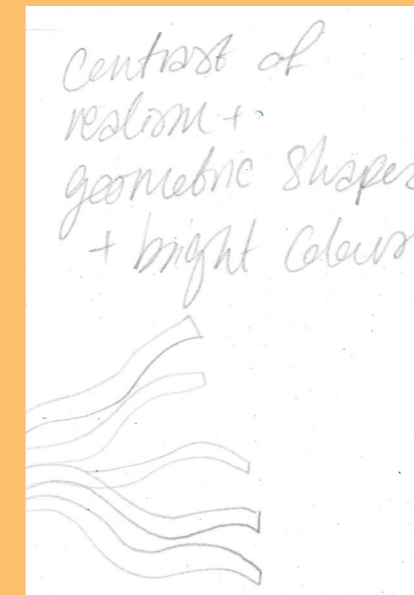 Contrast of
realism +
geometric shapes
+ bright colour